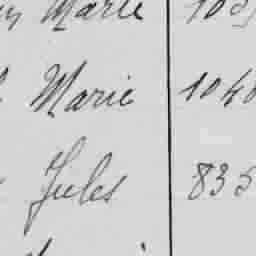 Marie 10
Marie 104
Jules 835